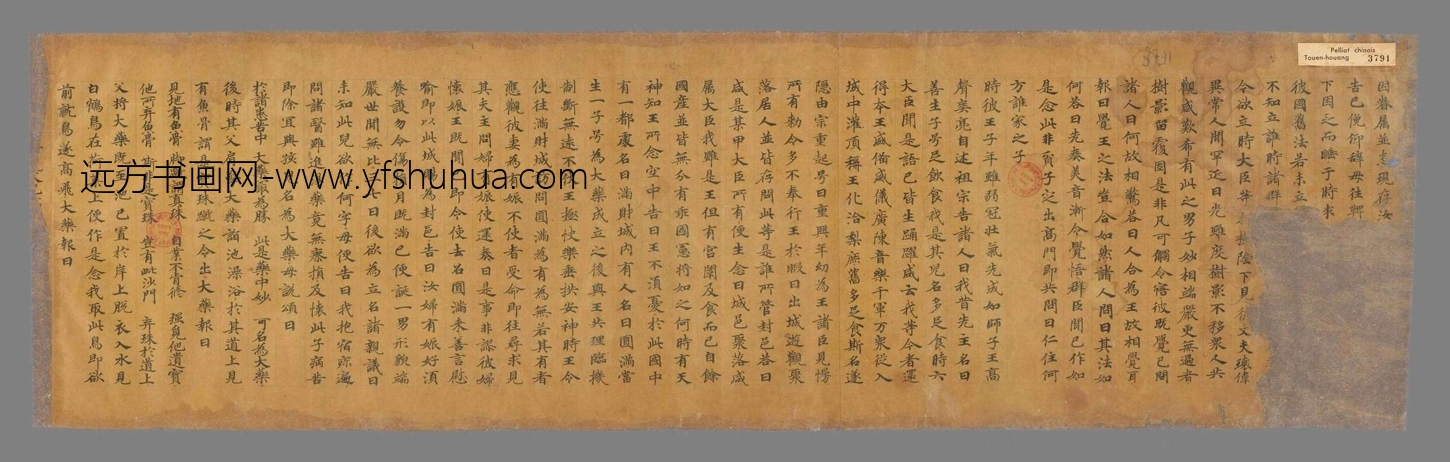 Pelliot chinois
Touen-houang 3791
因眷属並
現存汝
告已便仰辭母往
下因之而睡于時来
彼國舊法若未立
不知立誰時諸群
令欲立時大臣
陰下見彼丈夫瓌偉
異常人間罕迊日光雖度樹影不移衆人共
觀咸歎希有此之男子妙相端嚴更無過者
樹影留覆固是非凡可觸令寤彼既覺已問
諸人曰何故相驚答曰人合為王故相覺耳
報曰覺王之法豈合如然諸人問曰其法如
何答曰先奏美音漸令覺悟群臣聞已作如
是念此非貧子定出高門即共問曰仁住何
方誰家之子
時彼王子年雖弱冠壮氣先成如師子王高
聲美亮自述祖宗告諸人曰我昔先主名曰
善生子号足飲食我是其兒名多足食時六
大臣聞是語已皆生踊躍咸云我等今者還
得本王盛偹威儀廣陳音樂千軍万衆従入
城中灌頂稱王化洽黎庶舊多足食斯名遂
隱由宗重起号曰重興年幼為王諸臣見慢
所有勅令多不奉行王於暇日出城遊觀聚
落居人並皆存問此等是誰所管封邑答曰
咸是某甲大臣所有便生念曰城邑聚落咸
属大臣我雖是王但有宫闈及食而已自餘
國產並皆無分有乖國憲将如之何時有天
神知王所念空中告曰王不湏憂於此國中
有一都
名曰滿財城内有人名曰圓滿當
生一子号為大藥成立之後與王共理臨機
制斷無遠不
王極快樂垂拱安神時王令
使往滿財城
問圓滿為有為無若其有者
應觀彼妻為有
娠不使者受命即往尋求見
其夫主問婦有
娠使還奏曰是事非謬彼婦
懐娠王既聞
即令使去名圓滿来善言慰
喻即以此城
為封邑告曰汝婦有娠好湏
養護勿令傷
月既滿已便誕一男形貌端
嚴世間無比
日後欲為立名諸親議曰
未知此兒欲
何字母便告曰我抱宿痾遍
問諸醫雖進
藥竟無瘳損及懐此子病苦
即除宜與孩
名為大藥母説頌曰
於諸患苦中 大藥最為勝 此是藥中妙 可名為大藥
後時其父肩
大藥詣池澡浴於其道上見
有魚骨謂是
珠蹴之令出大藥報曰
見地有魚骨
真珠 自業不肯修 強覓他遺寳
他所弃魚骨
是寳珠 豈有毗沙門 弃珠於道上
父将大藥既至
池已置於岸上脱衣入水見
白鶴鳥在
上便作是念我取此鳥即欲
前就鳥遂高飛大藥報曰
远方书画网-www.yfshuhua.com